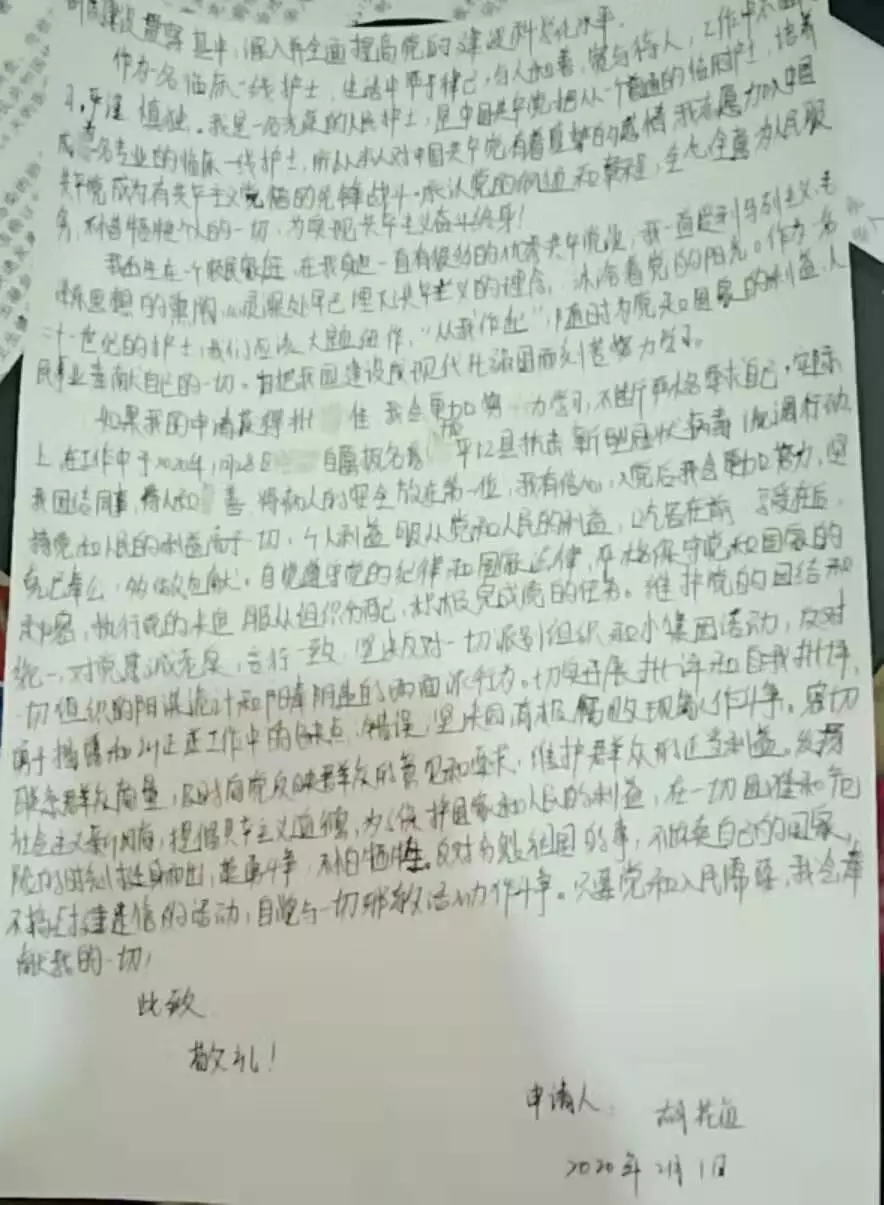 其中,深入并全面提高党的建设科学化水平.
作为一名临床一线护士,生活中严于律己,与人和善,宽与待人,工作中
严谨 慎独。我是一名光荣的人民护士,是中国共产党把从一个普通的临床护士,培养
成为名专业的临床一线护士,所以本人对中国共产党有着的感情我志愿加入中国
共产党成为有共产主义觉悟的先锋战斗.承认党的纲领和章程,全心全意为人民服
务,不惜牺牲个人的一切,为实现共产主义奋斗终身!
我出生在一个农民家庭,在我身边一直有很多的优秀共产党员,我一直受到马列主义,毛
思想的熏陶,心灵深处早已埋下共产主义的理念,沐浴着党的阳光。作为一名
二十一世纪的护士,我们应该大胆细作,“从我作起”,随时为党和国家的利益,人
民事业奉献自己的一切。为把我国建设成现代化强国而刻苦努力学习。
如果我的申请获得批 准 我会更加努 力学习,不断严格要求自己,实际
上,在工作中于2020年1月28日 自愿报名 平江县抗击新型冠状病毒 行动
我团结同事,待人和 善 将病人的安全放在第一位,我有信心,入党后我会更加努力,坚
持党和人民的利益高于一切,个人利益服从党和人民的利益,吃苦在前 享受在后,
克己奉公,多做贡献。自觉遵守党的纪律和国家法律,严格保守党和国家的
秘密,执行党的决定 服从组织分配,积极完成党的任务。维护党的团结和
统一,对党忠诚老实,言行一致,坚决反对一切派别组织和小集团活动,反对
一切组织的阴谋诡计和阳奉阴违的两面派行为。切实开展批评和自我批评,
勇于揭露和纠正工作中的缺点,错误,坚决同消极腐败现象作斗争。密切
联系群众,及时向党反映群众的意见和要求,维护群众的正当利益。发扬
社会主义新风尚,提倡共产主义道德,为保护国家和人民的利益,在一切困难和危
险的时刻挺身而出,英勇斗争,不怕牺牲。反对分裂祖国的事,不做卖自己的国家,
不搞封建迷信的活动,自觉与一切邪教活动作斗争。只要党和人民需要,我会奉
献我的一切!
此致
敬礼!
申请人:胡
2020年2月1日